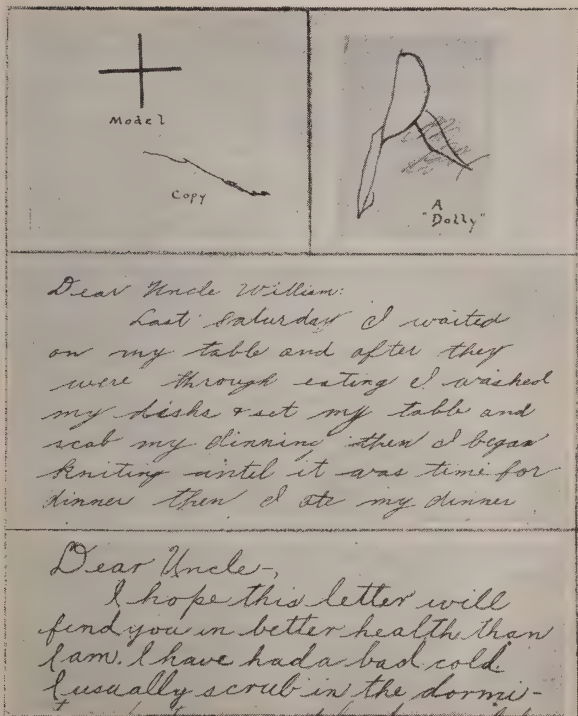 Model
Copy
A
"Dolly"
Dear Uncle William:
Last Saturday I waited
on my table and after they
were through eating I washed
my dishs & set my table and
scab my dinning then I began
kniting until it was time for
dinner then I ate my dinner
Dear Uncle-,
I hope this letter will
find you in better health than
I am. I have had a bad cold.
I usually scrub in the dormi-